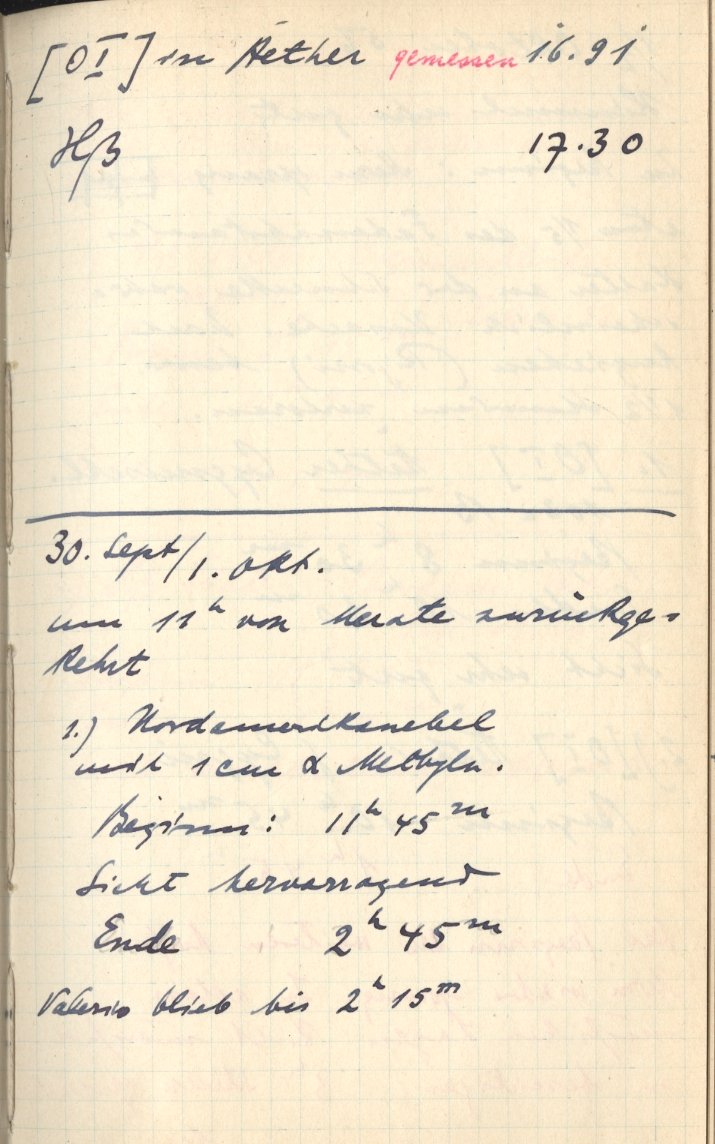 [OI] in Aether gemessen 16.91
Hβ 17.30
30. Sept/1. Okt.
um 11h von Merate zurückge-
kehrt
1.) Nordamerikanebel
mit 1 cm α Methyln.
Beginn: 11h 45m
Sicht hervorragend
Ende 2h 45m
Valerio blieb bis 2h 15m